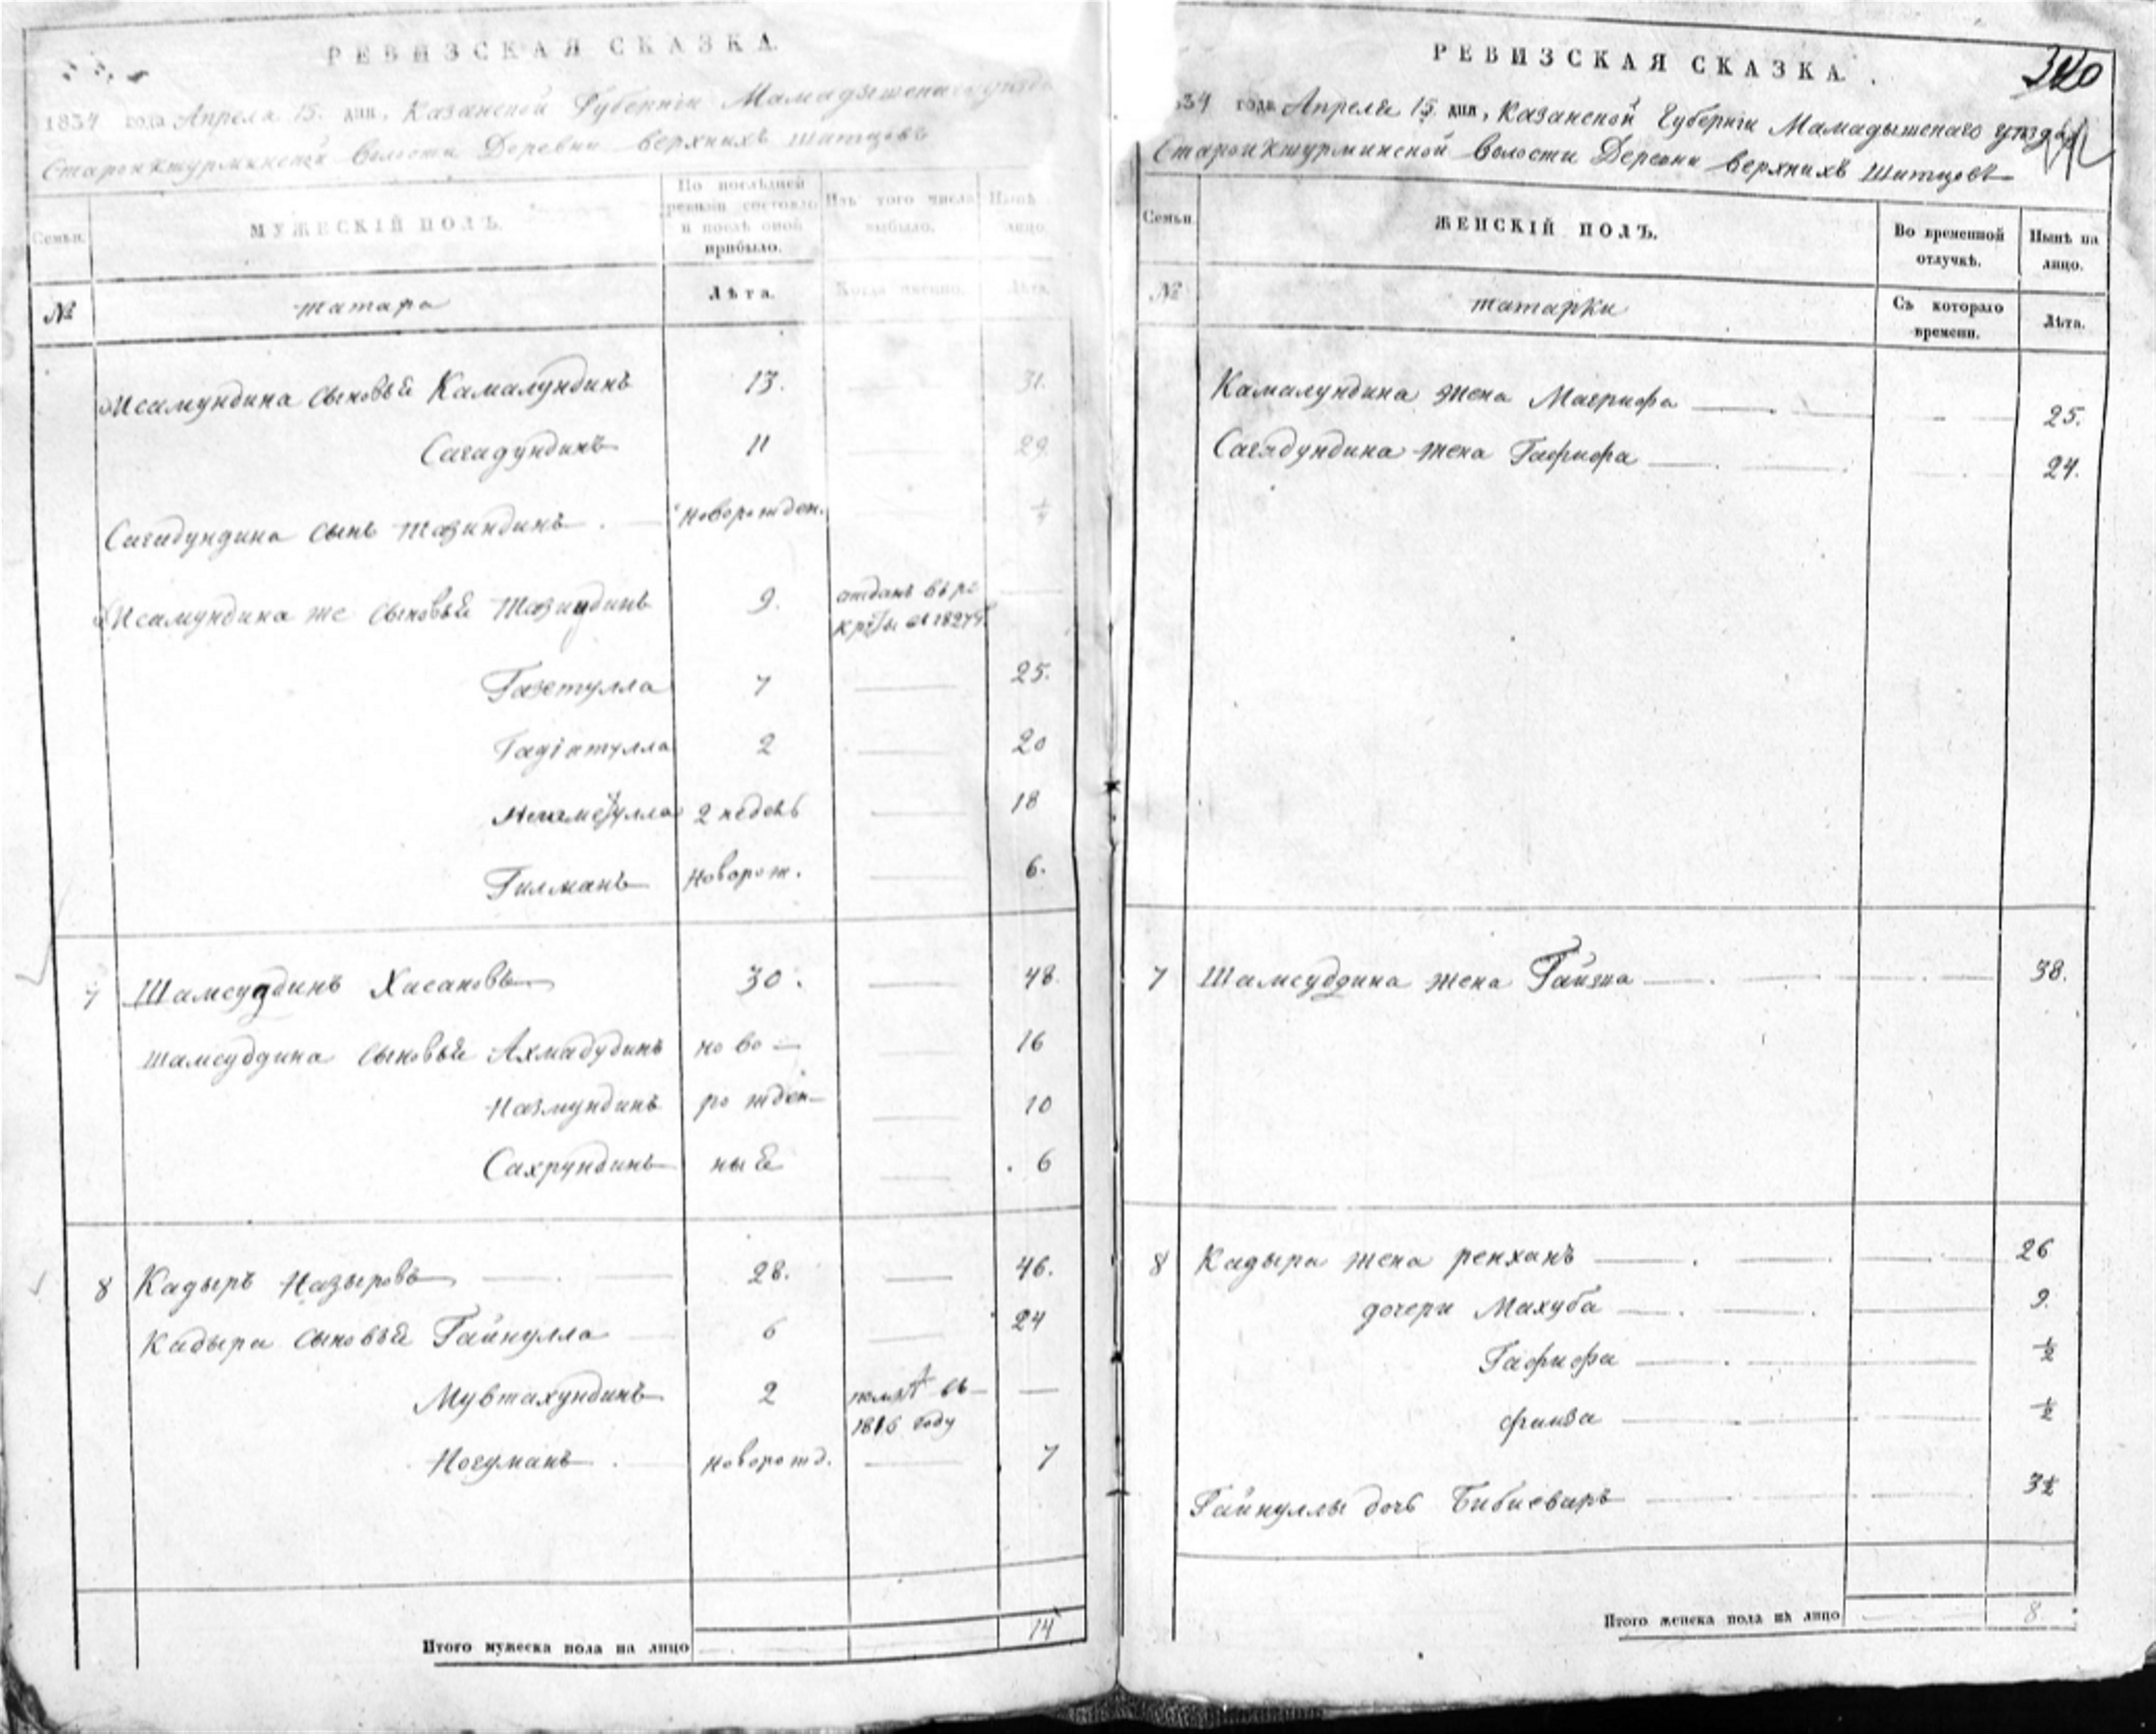 РЕВИЗСКАЯ СКАЗКА.
1834 года Апреля 15. дня, Казанской Губернiи Мамадышенаго уѣзда
Староиктурминской Волости Деревни верхнихъ Шитцовъ
Семьи.
МУЖЕСКІЙ ПОЛЪ.
По послѣдней ревизіи состояло и послѣ оной прибыло.
Изъ того числа выбыло.
Нынѣ лицо.
№
татара
Лѣта.
Когда именно.
Лѣта.
Исамундина сыновья Камалундинъ 13. 31.
Сагидундинъ 11 29
Сагидундина сынъ Тазиндинъ новорожден.
Исамундина же сыновья Тазиудинъ 9. отданъ въ ре
круты въ 1827 г.
Газетулла 7 25.
Гадiатулла 2 20
2 недель 18
Гилманъ новорож. 6.
7 Шамсуддинъ Хисановъ 30. 48.
Шамсуддина сыновья Ахмадудинъ ново 16
Назмундинъ рожден 10
Сахрундинъ ныя 6
8 Кадыръ Назыровъ 28. 46.
Кадыра сыновья Гайнулла 6 24
Мувтахундинъ 2 помръ въ
1816 году
Ногуманъ новорожд. 7
Итого мужеска пола на лицо 14
РЕВИЗСКАЯ СКАЗКА.
34 года Апреля 15 дня, Казанской Губернiи Мамадышенаго уѣзда
Староиктурминской Волости Деревни верхнихъ Шитцовъ
Семьи.
ЖЕНСКІЙ ПОЛЪ.
Во временной отлучкѣ.
Нынѣ на лицо.
№
татарки
Съ котораго времени.
Лѣта.
Камалундина жена Магриофа 25.
Сагидундина жена Гафиофа 24.
7 Шамсуддина жена Гайзна 38.
8 Кадыра жена ренханъ 26
дочери Махуба 9.
Гафиофа ½
фаиза ½
Гайнуллы дочь Бибисваръ 3½
Итого женска пола на лицо 8